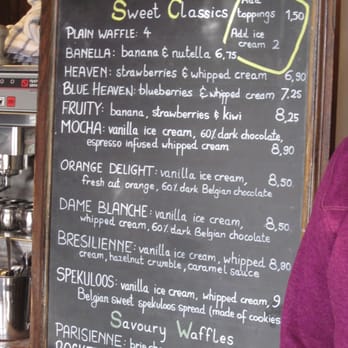 Sweet Classics
Add
toppings 1,50
Add ice
cream 2
PLAIN WAFFLE: 4
BANELLA: banana & nutella 6,75
HEAVEN: strawberries & whipped cream 6,90
BLUE HEAVEN: blueberries & whipped cream 7,25
FRUITY: banana, strawberries & kiwi 8,25
MOCHA: vanilla ice cream, 60% dark chocolate,
espresso infused whipped cream 8,90
ORANGE DELIGHT: vanilla ice cream, 8,50
fresh cut orange, 60% dark Belgian chocolate
DAME BLANCHE: vanilla ice cream, 8,50
whipped cream, 60% dark Belgian chocolate
BRESILIENNE: vanilla ice cream, whipped 8,90
cream, hazelnut crumble, caramel sauce
SPEKULOOS: vanilla ice cream, whipped cream, 9
Belgian sweet spekuloos spread (made of cookies
Savoury Waffles
PARISIENNE: